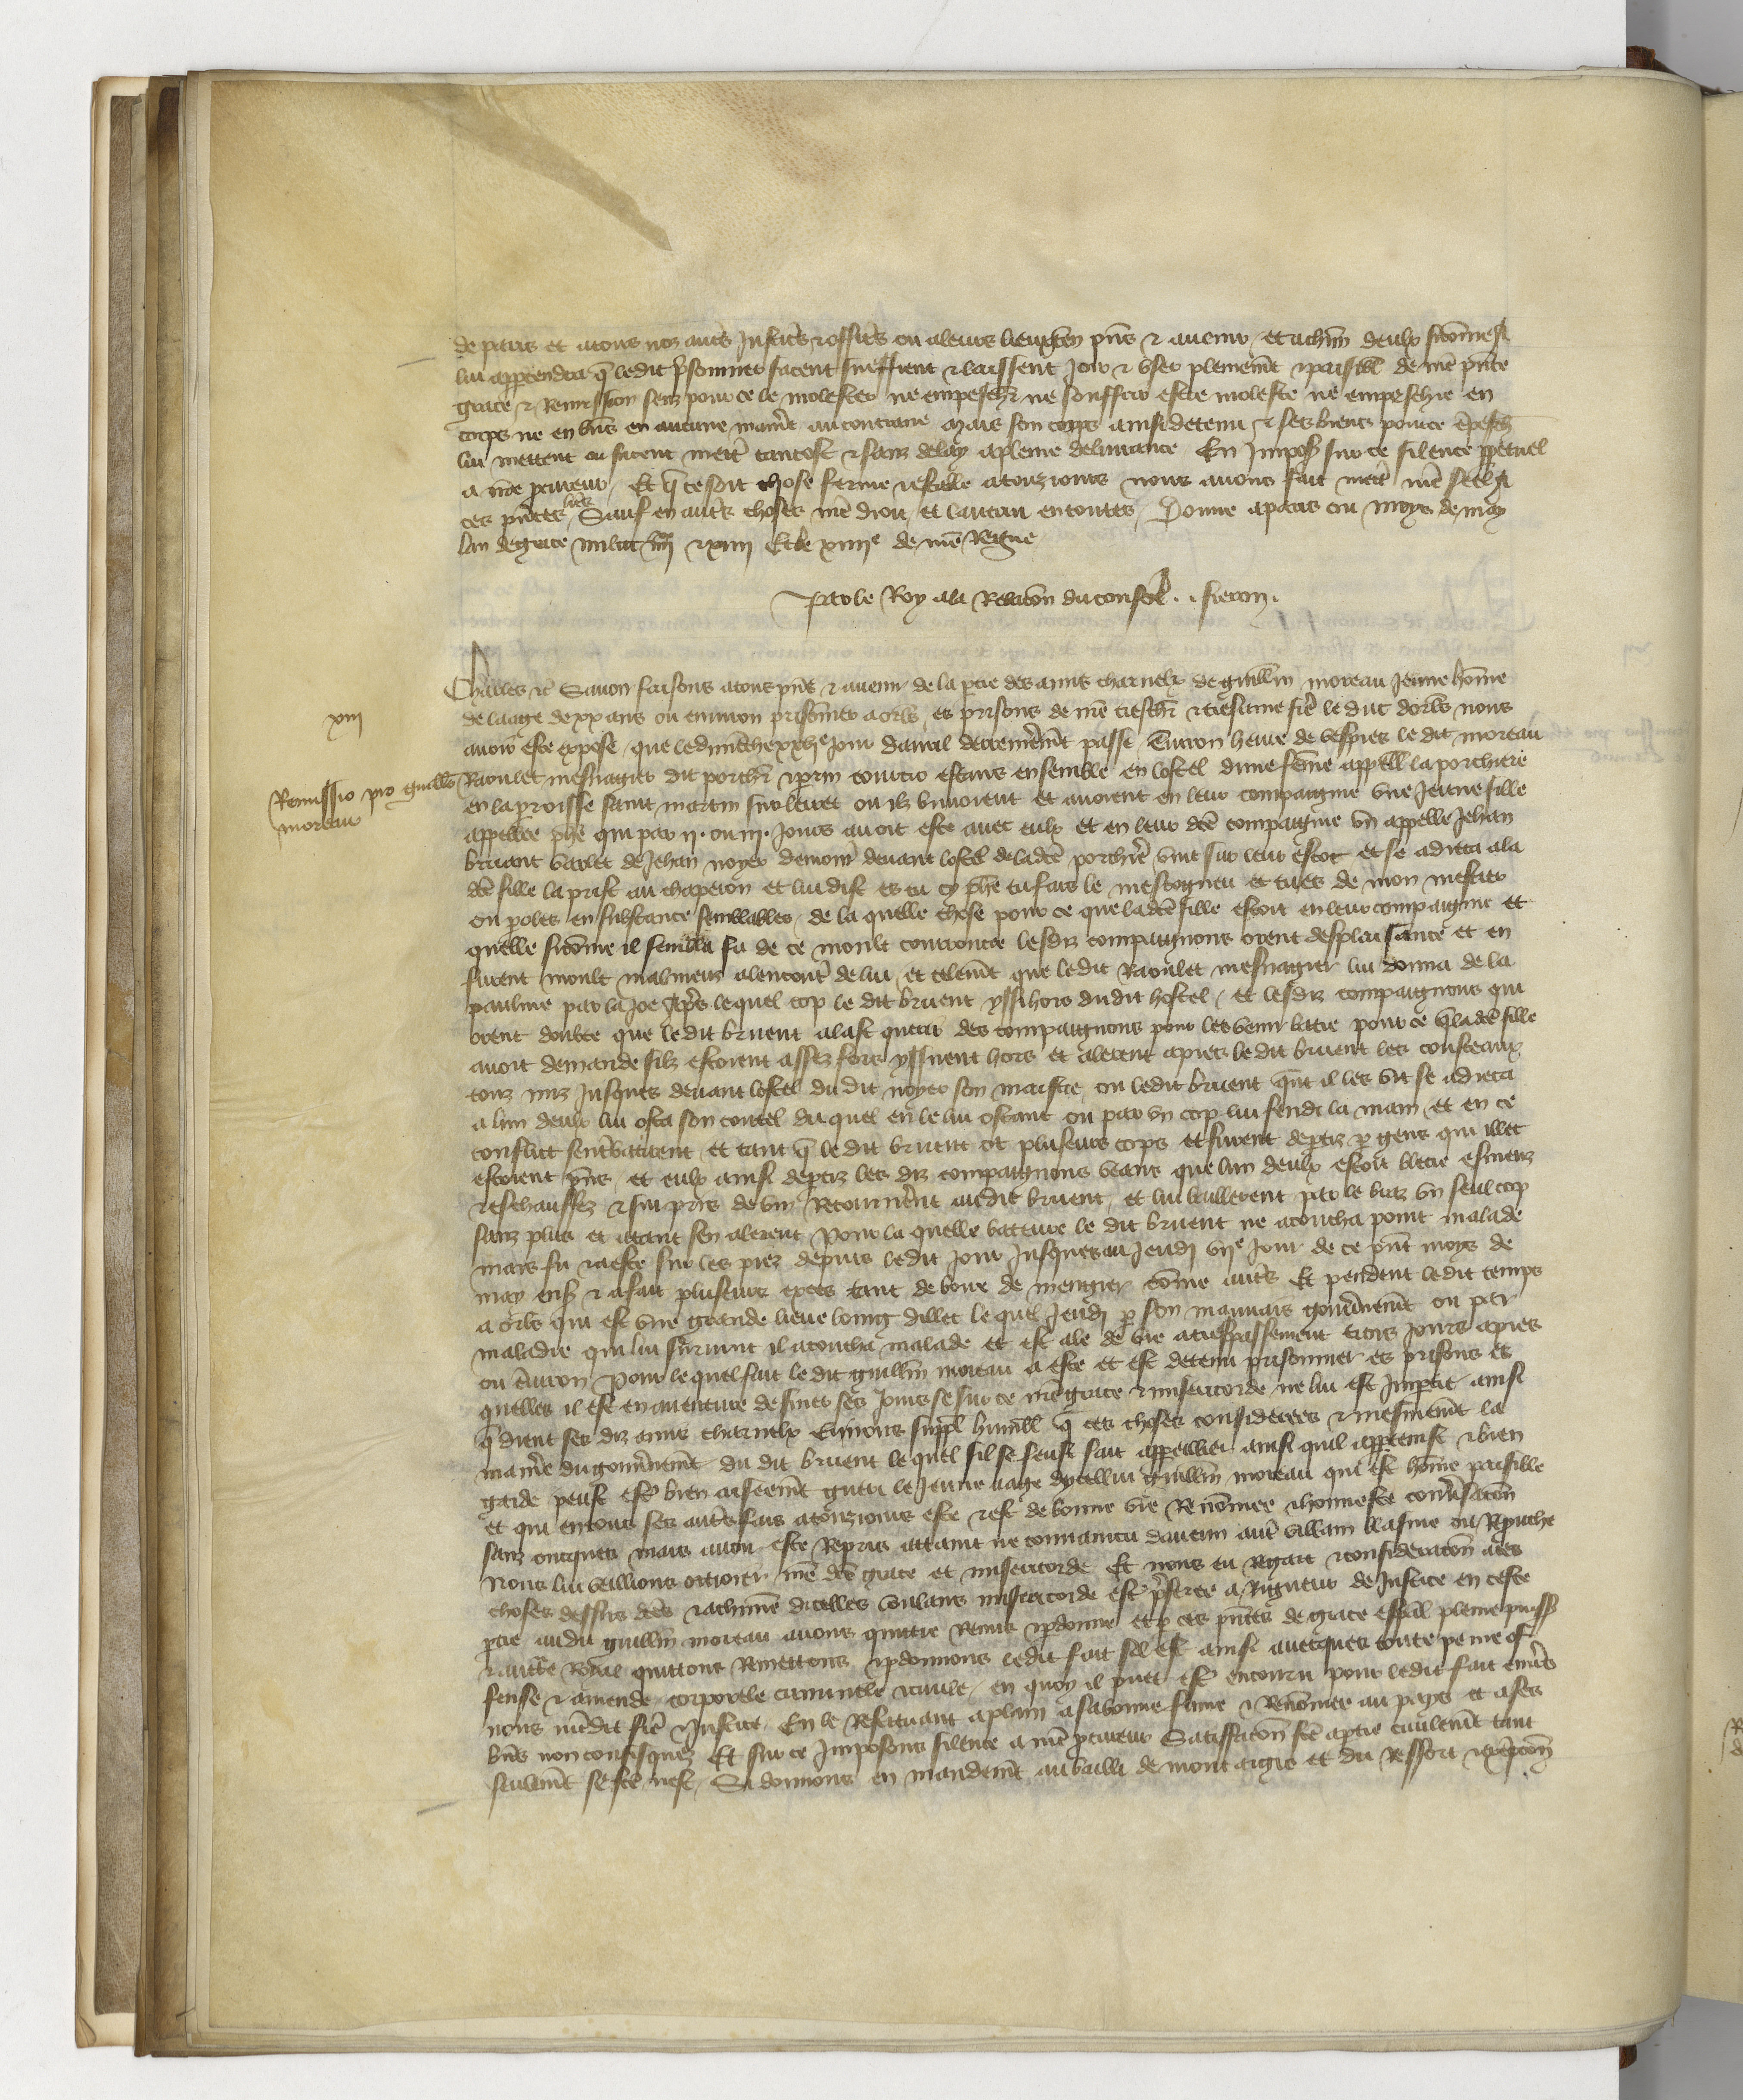 de paris et a tous noz autres Justic̃ & offic̃ ou a leurs lieuxten̄ pñs & avenir et a chũn deulx si cõme a
lui appartendra q̃ ledit prisonnier facent sueffrent & laissent Joir & user plenemẽt & paisibl̃ de nr̃e pñte
grace & Remission senz pour ce le molester ne empeschr̃ ne souffrir estre moleste ne empeschie en
corps ne en biẽs en aucune maniẽ au contraire Mais son corps ainsi detenu & ses biens pour ce ẽpeschez
lui mettent ou facent mettr̃ tantost & sanz delay a pleine delivrance En Imposã sur ce silence ꝑpetuel
a nr̃e procureur Et q̃ ce soit chose ferme & estable a touzjours nous avons fait mettr̃ nr̃e seel a
ces pñtes lr̃es Sauf en autr̃s choses nr̃e droit et lautrui en toutes Donne a paris ou moys de may
lan de grace mil ccc iiijxx & xiiij Et le xiiije de nr̃e Regne
Par le Roy a la Relacõn du conseil . . freron .
Charles &c̃ Savoir faisons a tous pñs & avenir de la partie des amis charnelz de guillm̃ moreau Jeune hõme
xiij
de laage de xx ans ou environ prisonnier a orl̃s es prisons de nr̃e treschr̃ & tresame frẽ le duc dorl̃s nous
avoir este expose que le dimẽche xxvje Jour davril derrenieremẽt passe Environ heure de vespres le dit moreau
Remissio pro guill̃o
moreau
Raoulet mesnagier dit porchr̃ & ꝑrin estans ensemble en lostel dune fẽme appell̃ la porchiere
en la ꝑroisse saint martin sur loiret ou ilz buvoient et avoient en leur compaignie une Jeune fille
appellee phẽ qui par ij. ou iij. Jours avoit este avec eulx et en leur dc̃e compaignie un appelle Jehan
bruant varlet de Jehan noyer demour̃ devant lostel de ladc̃e porchr̃e vint sur leur escot et se adreca a la
dc̃e fille la prist au chaperon et lui dist es tu cy phẽ tu fais le mescogneu et tu es de mon mestier
ou paroles en substance semblables de la quelle chose pour ce que ladc̃e fille estoit en leur compaignie et
quelle si cõme il sembla fu de ce moult courroucee lesdiz compaignons orent desplaisance et en
furent moult malmeuz alencontr̃ de lui et telemẽt que ledit Raoulet mesnagier lui donna de la
paulme par la Joe Apr̃s lequel cop le dit bruent yssi hors dudit hostel et lesdiz compaignons qui
orent doubte que ledit bruent alast querir des compaignons pour les venir batre pour ce q̃ ladc̃e fille
avoit demande silz estoient assez fors yssirent hors et alerent apres le dit bruent les cousteaux
touz nuz Jusques devant lostel du dit noyer son maistre ou ledit bruent quãt il les vit se adreca
a lun deulx lui osta son coutel du quel en le lui ostant ou par un cop lui fendi la main et en ce
conflict sentrebatirent et tant q̃ le dit bruent ot pluseurs cops et furent departiz ꝑ gens qui illec
estoient pñs et eulx ainsi departiz les diz compaignons veans que lun deulx estoit blecie esmeuz
& eschauffez & surpris de vin Retournerent audit bruent et lui baillerent par le braz un seul cop
sanz plus et atant sen alerent Pour la quelle bature le dit bruent ne acoucha point malade
mais fu & a este sur les piez depuis le dit jour Jusques au Jeudi vije Jour de ce pñt moys de
may ens̃ & a fait pluseurs exces tant de boire de mengier cõme autr̃s Et pendent ledit temps
a orl̃s qui est une grande lieue loing dillec le quel Jeudi ꝑ son mauvais gouvñemẽt ou par
maladie qui lui survint il acoucha malade et est ale de vie a trespassement trois jours apres
ou ẽviron Pour le quel fait le dit guillm̃ moreau a este et est detenu prisonnier es prisons es
quelles il est en aventure de finer ses Jours se sur ce nr̃e grace & misericorde ne lui est Impartie ainsi
q̃ dient ses diz amis charnelx En nous suppl̃ humbl̃ q̃ ces choses considerees & mesmemẽt la
maniẽ du gouvñemẽt du dit bruent lequel sil se feust fait appareillier ainsi quil appartenist & bien
garde peust estr̃ bien aiseemẽt gueri le Jeune aage dycellui guillm̃ moreau qui est hõme paisible
et qui en tous ses autr̃s fais a touzjours este & est de bonne vie Renõmee & honneste conversacõn
sanz oncques mais avoir este Repris attaint ne convaincu daucun autr̃ villain blasme ou Reprouche
Nous lui veillions ottroier nr̃e dc̃e grace et misericorde Et nous eu regart & consideracõn aux
choses dessus dc̃es & a chũne dicelles voulans misericorde estr̃ pr̃feree a Rigueur de Justice en ceste
partie audit guillm̃ moreau avons quittie Remis & ꝑdonne et ꝑ ces pñtes de grace espãl pleine puiss̃
& auctr̃te Royal quittons Remettons & ꝑdonnons ledit fait sil est ainsi avecques toute peine of
fense & amende corporele criminele & civile en quoy il puet estr̃ encouru pour ledit fait envers
nous nr̃edit frẽ & Justice En le Restituant a plain a sa bonne fame & Renõmee au pays et a ses
biẽs non confisquez Et sur ce Imposons silence a nr̃e procureur Satisfacõn fc̃e a partie civilemẽt tant
seulemẽt se fc̃e nest Si donnons en mandemẽt au bailli de montargis et du Ressort & exempcõn